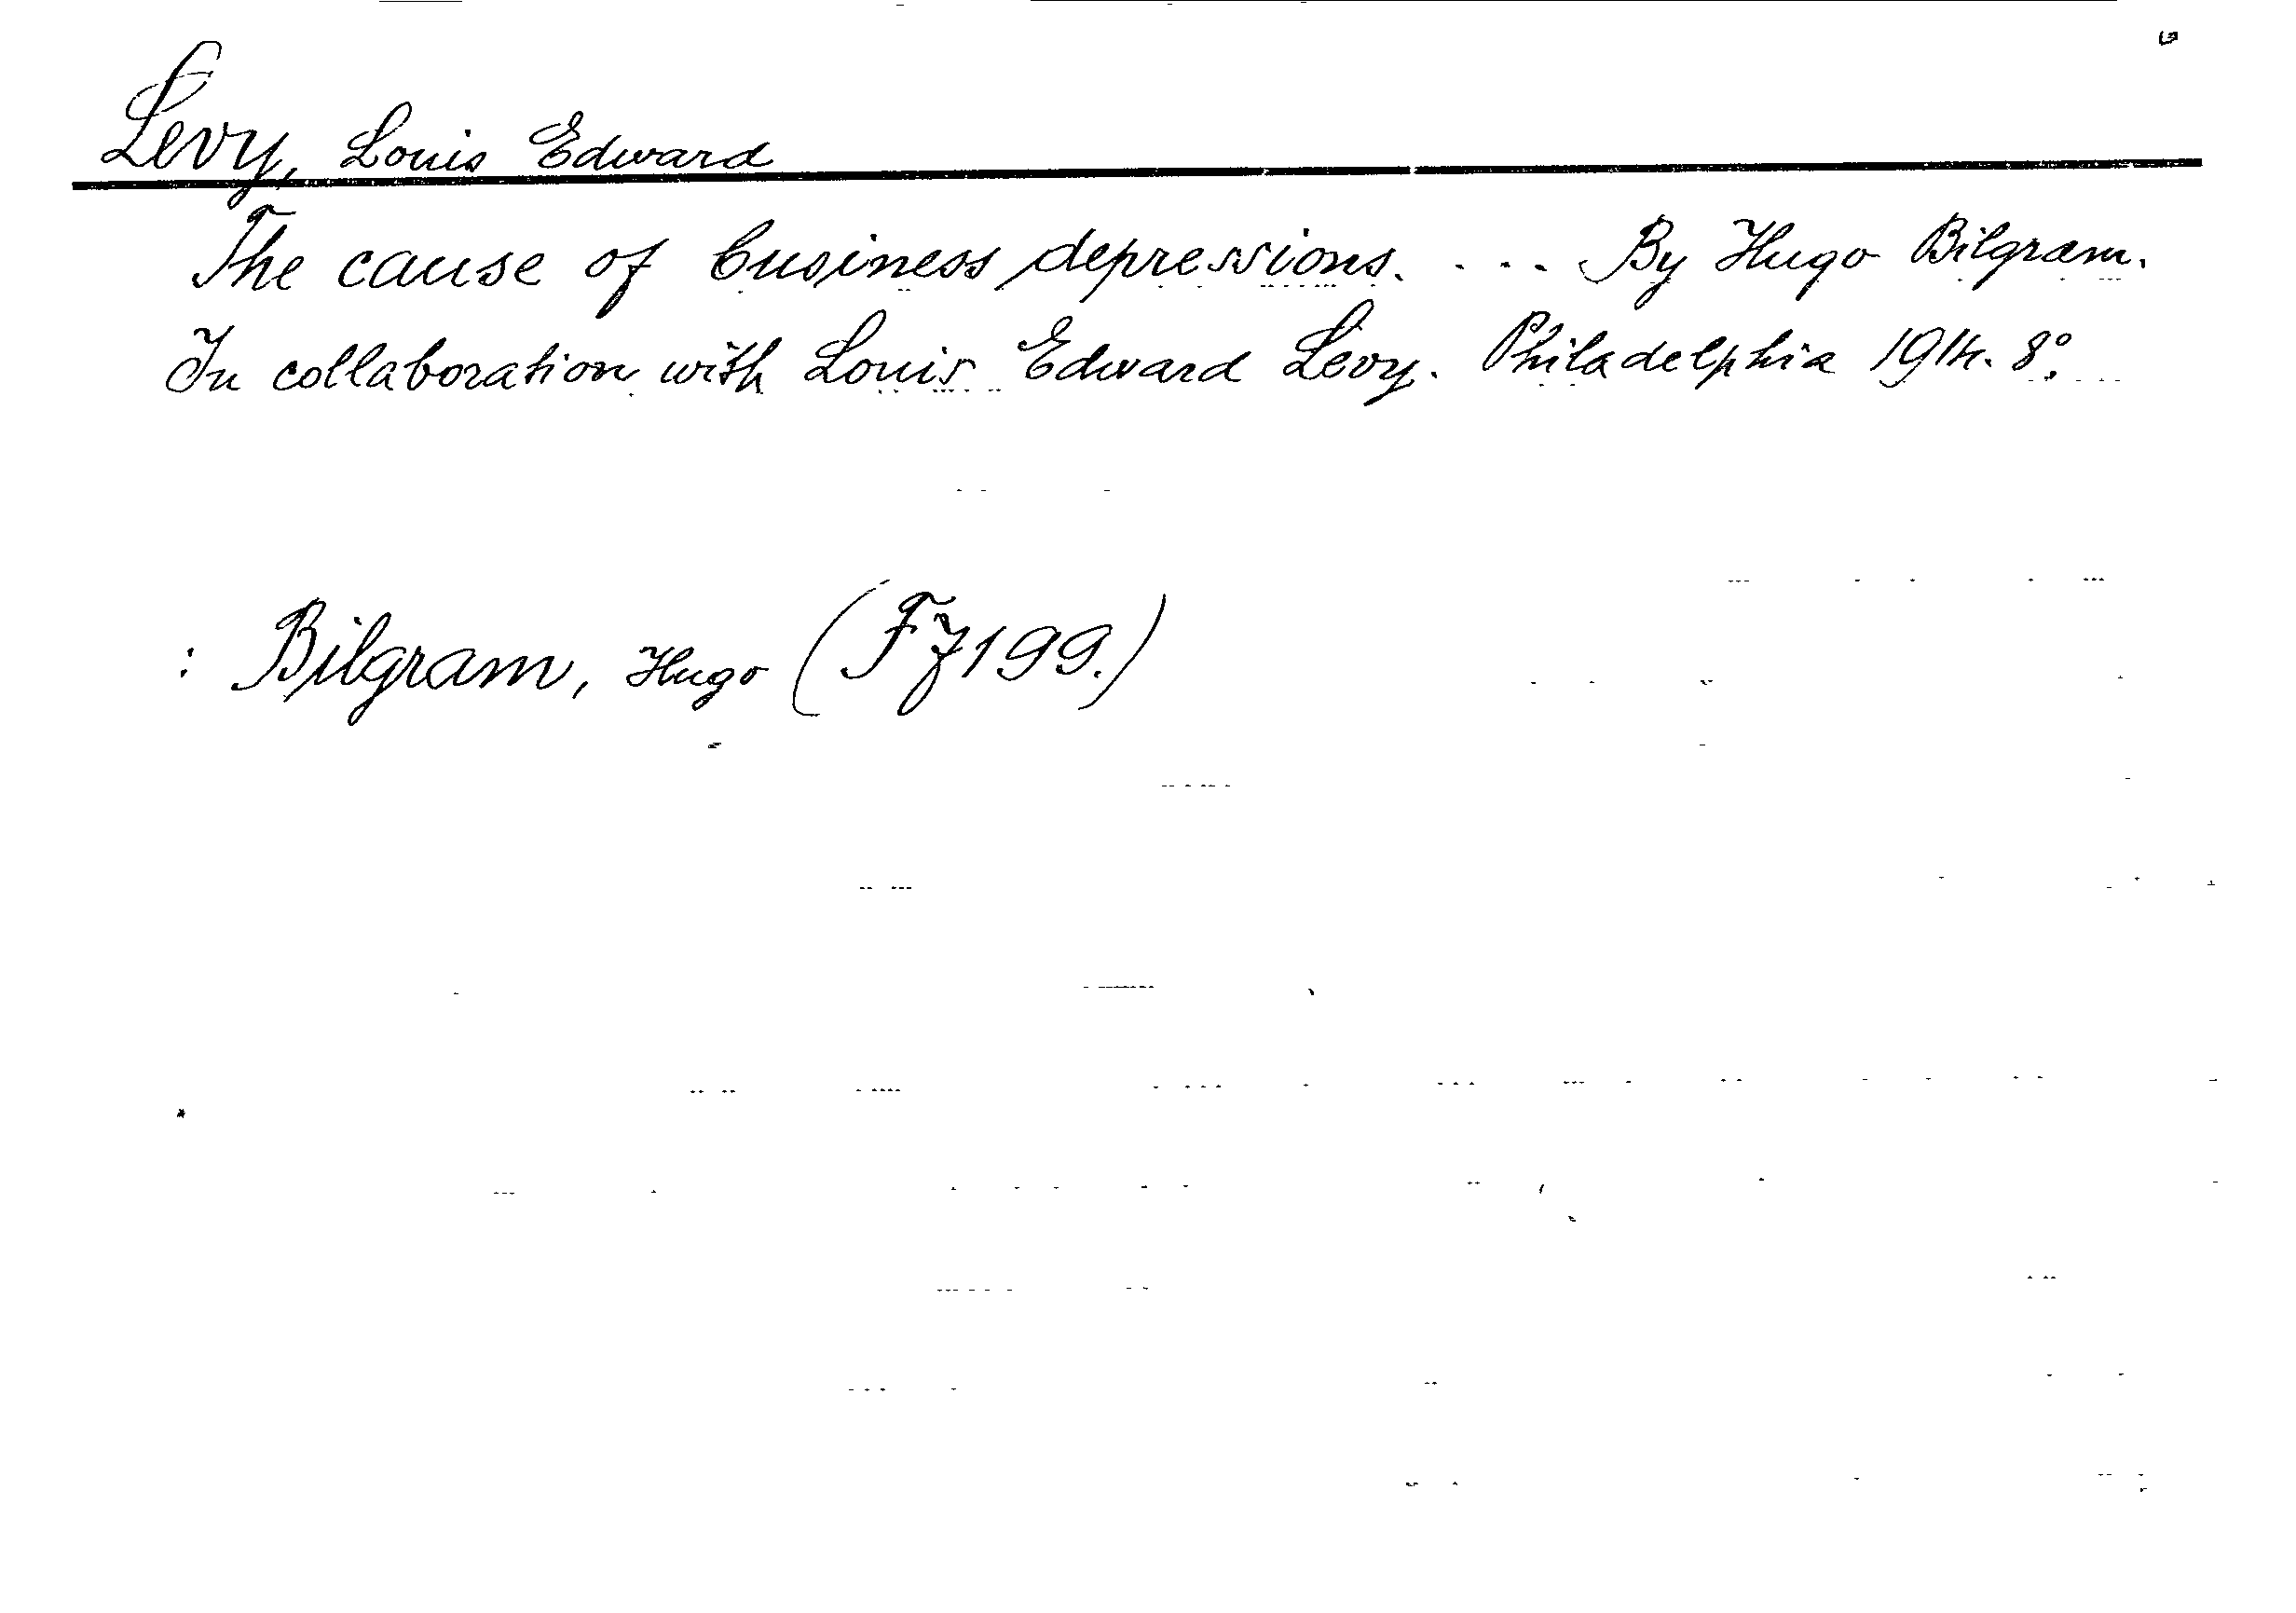 Levy, Louis Edward
The cause of business depressions. ... By Hugo Bilgram.
In collaboration with Louis Edward Levy. Philadelphia 1914. 8°.
: Bilgram, Hugo (F7199.)